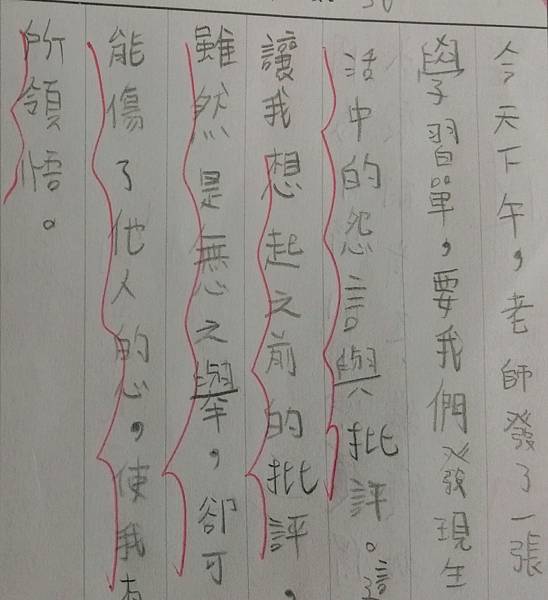 今天下午,老師發了一張
學習單,要我們發現生
活中的怨言與批評。這
讓我想起之前的批評,
雖然是無心之舉,卻可
能傷了他人的心,使我有
所領悟。